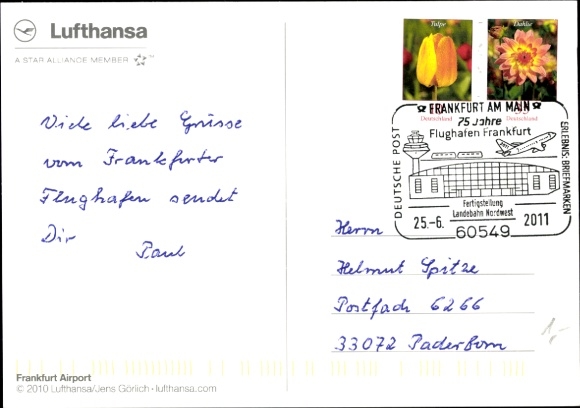 Lufthansa
A STAR ALLIANCE MEMBER
Tulpe
Dahlie
Deutschland
Deutschland
FRANKFURT AM MAIN
75 Jahre
Flughafen Frankfurt
DEUTSCHE POST
ERLEBNIS: BRIEFMARKEN
Fertigstellung
Landebahn Nordwest
25.-6. 2011
60549
Viele liebe Grüsse
vom Frankfurter
Flughafen sendet
Dir
Paul
Herrn
Helmut Spitze
Postfach 6266
33072 Paderborn
1,-
Frankfurt Airport
© 2010 Lufthansa/Jens Görlich · lufthansa.com